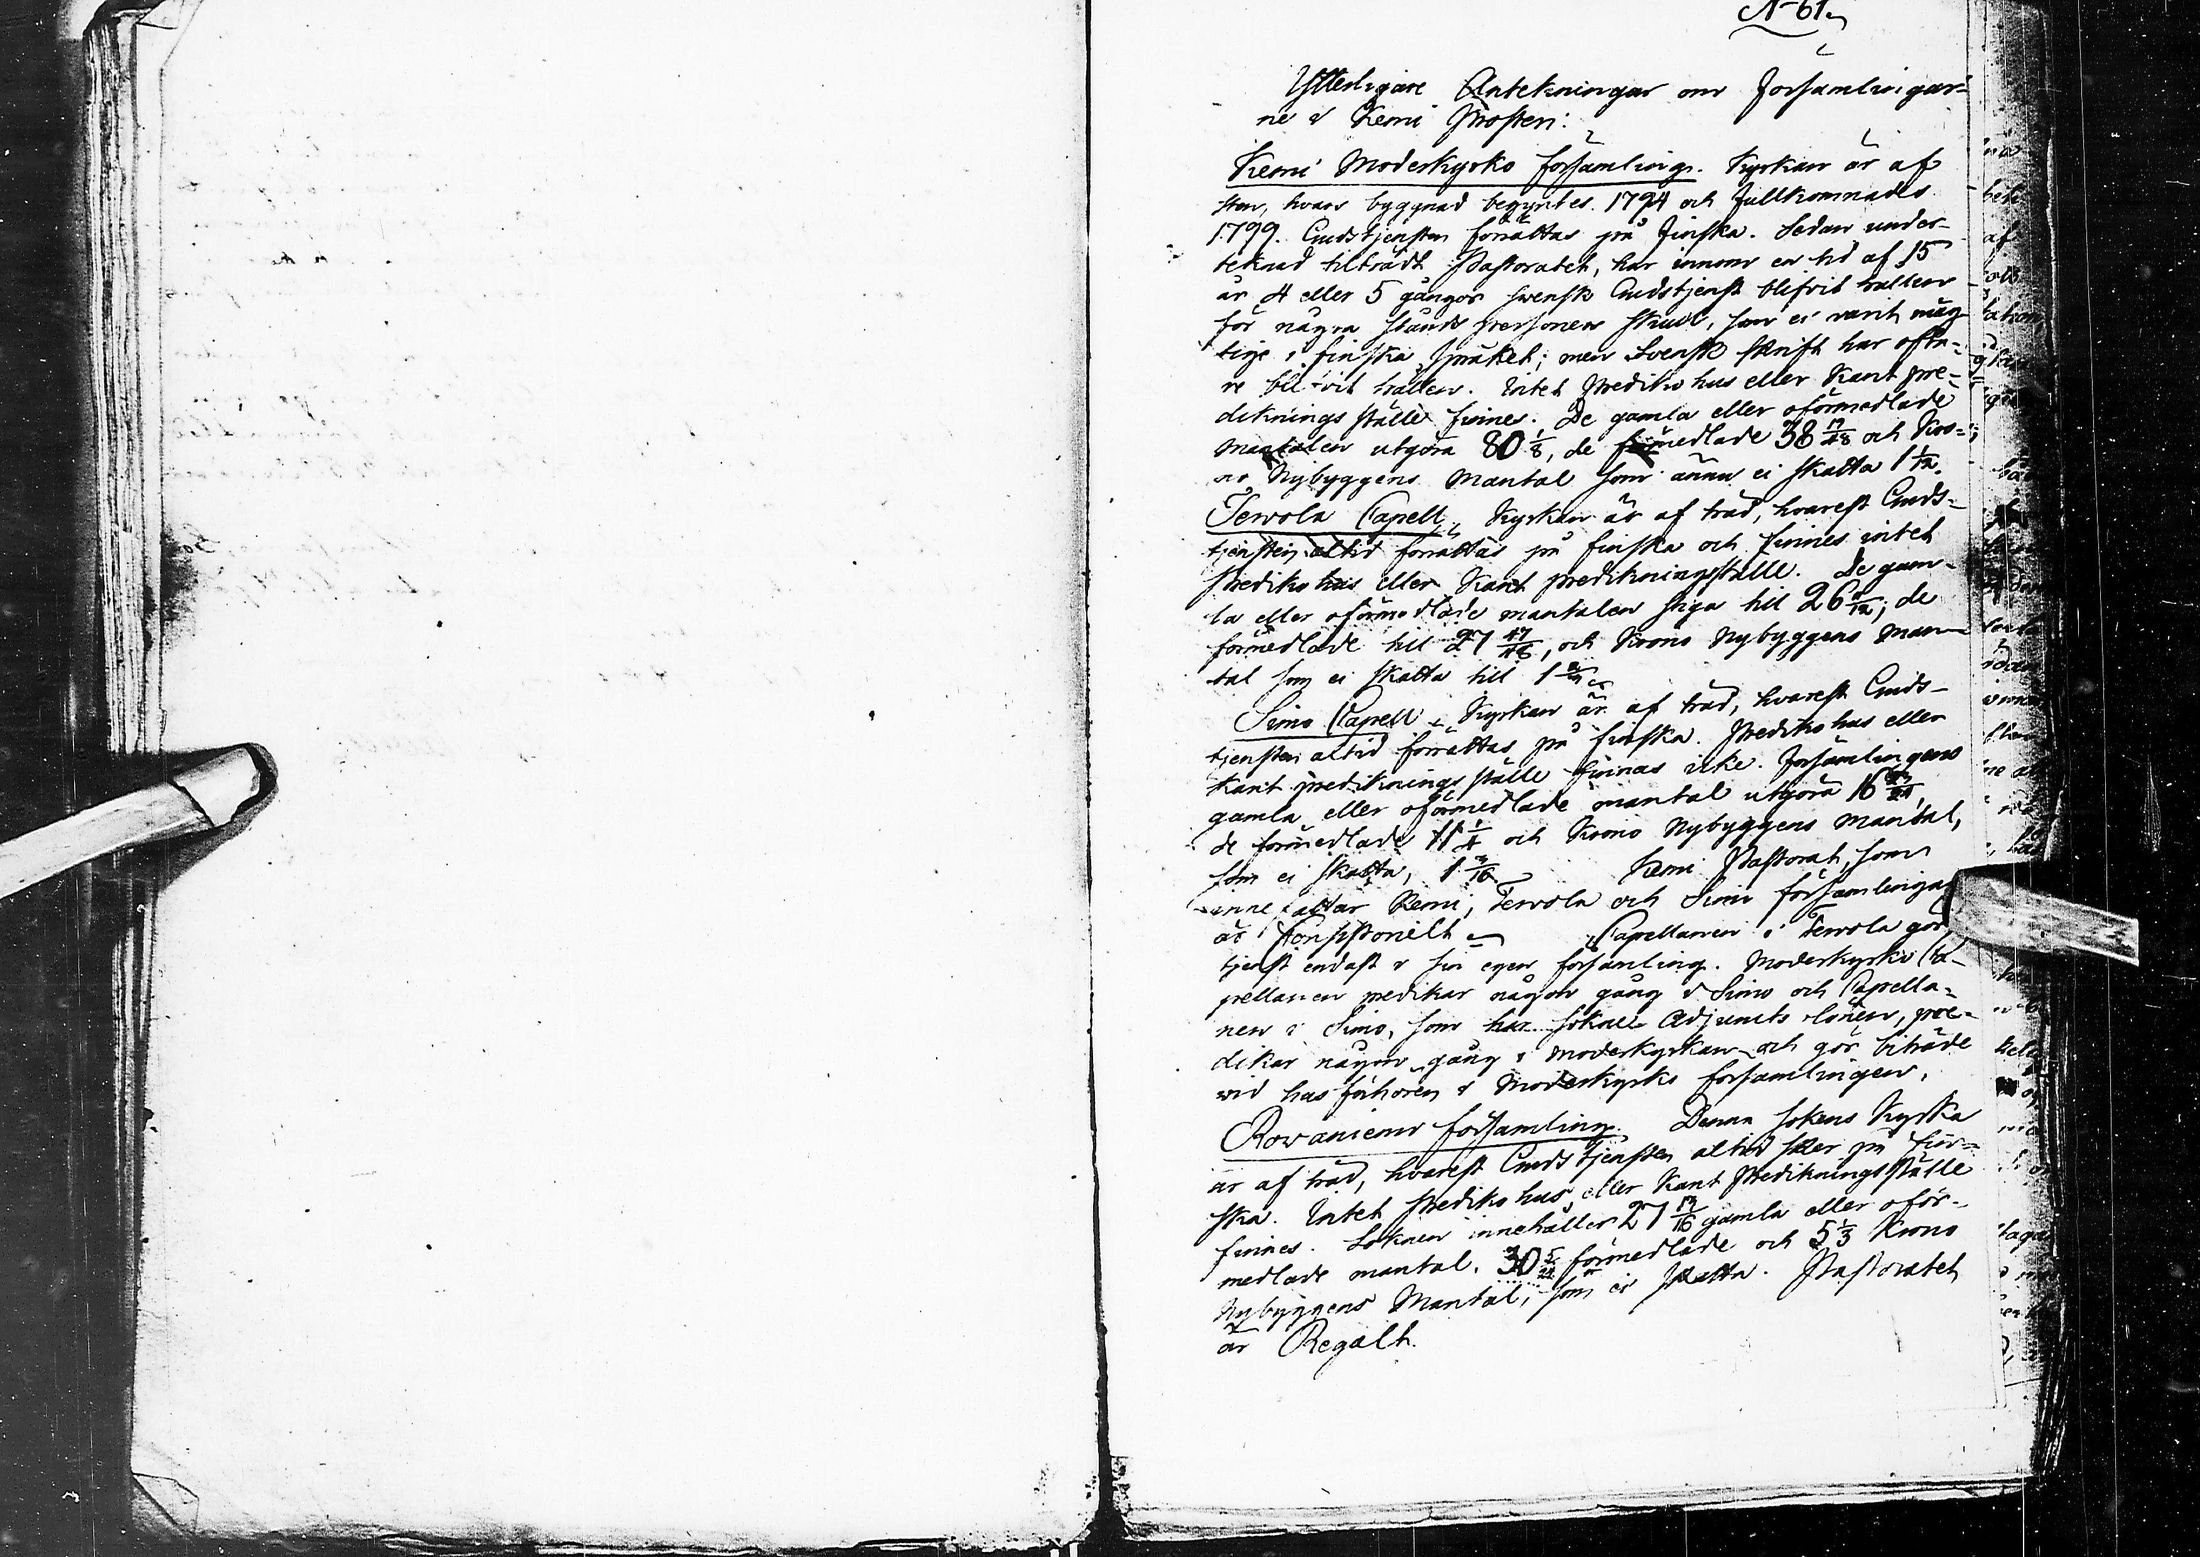 N 61.
Ytterligare Antekningar om Församlingar=
ne i Kemi Prosteri:
Kemi Moderkyrko församling. Kyrkan är af
sten, hvars byggnad begyntes 1794 och fullkomnades
1799. Gudstjensten förrättas på Finska. Sedan under-
teknad tilträdt Pastoratet, har innom en tid af 15
år 4 eller 5 gångor Svensk Gudstjenst blifvit hallen
för några stånds personers skull, som ei varit mäg-
tige i finska språket; men Svensk skrift har ofta=
re blifvit hållen. Intet Prediko hus eller Kant pre=
diknings ställe finnes. De gamla eller oförmedlade
mantalen utgöra 80 1/8, de förmedlade 38 17/48 och Kro=
no Nybyggens Mantal som ännu ei skatta 1 1/12.
Tervola Capell, Kyrkan är af träd, hvarest Guds=
tjensten altid förrättas på finska och finnes intet
Prediko hus eller Kant predikningsställe. De gam-
la eller oförmedlade mantalen stiga till 26 /12; de
förmedlade till 27 47/48, och Krono Nybyggens man-
tal som ei skatta till 1
Simo Capell, Kyrkan är af träd, hvarest Guds-
tjensten altid förrättas på finska. Prediko hus eller
Kant predikningsställe finnas icke. Församlingens
gamla eller oförmedlade mantal utgöra 16 /24,
de förmedlade 11 1/4 och Krono Nybyggens mantal,
som ei skatta, 1 3/16 Kemi Pastorat, som
innefattar Kemi, Tervola och Simo församlingar
är Konsistorielt Capellanen i Tervola gör
tjenst endast i sin egen församling. Moderkyrko Ca-
pellanen predikar någon gång i Simo och Capella=
nen i Simo, som har Adjuncts lönen, pre=
dikar någon gång i moderkyrkan och gör biträde
vid husförhören i Moderkyrko församlingen.
Rovaniemi församling. Denna Sokens Kyrka
är af träd, hvarest Gudstjensten altid sker på Fin=
ska. Intet Prediko hus eller Kant Predikningsställe
finnes. Soknen innehåller 27 13/16 gamla eller oför-
medlade mantal. 30 5/24 förmedlade och 5 1/3 Krono
Nybyggens Mantal, som ei skatta. Pastoratet
är Regalt.